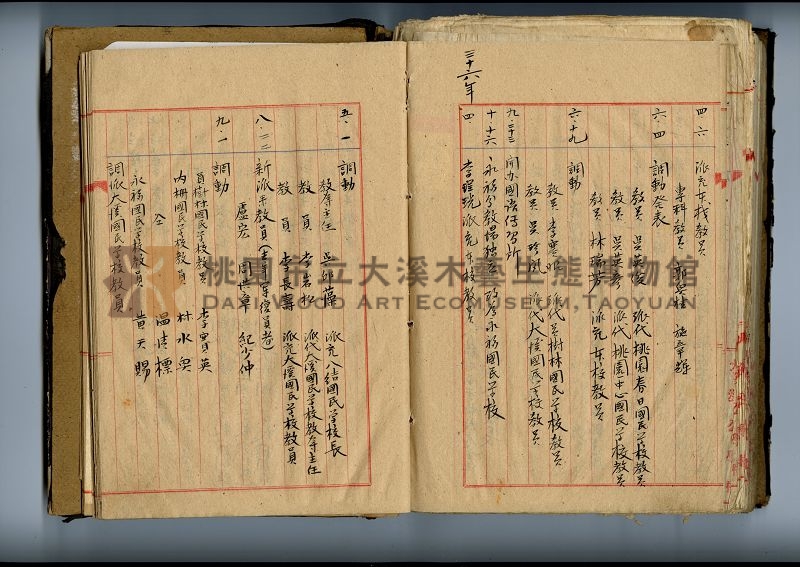 四·六 派充本校教員
專科教員 施章輝
六·四 調動發表
教員 吳英俊 派代桃園春日國民学校教員
教員 吳英彥 派代桃園中心國民学校教員
教員 林瑞芳 派充本校教員
六·十九 調動
教員 李 派代員樹林國民学校教員
教員 吳珍鳳 派代大溪國民学校教員
九·二三 開办國語传習所
十·十六 永福分教場独立 改为永福國民学校
三十六年
四· 李 派充本校教員
五·一 調動
教导主任 派充八結國民学校長
教員 李岩松 派代大溪國民学校教导主任
教員 李長壽 派充大溪國民学校教員
八· 新派来教員(青年軍復員者)
盧宏 周世章 紀少仲
九·一 調動
員樹林國民学校教員 李寶英
内柵國民学校教員 林水
仝 溫清標
永福國民学校教員 黄天賜
調派大溪國民学校教員
桃園市立大溪木藝生態博物館
Daxi Wood Art Ecomuseum, Taoyuan